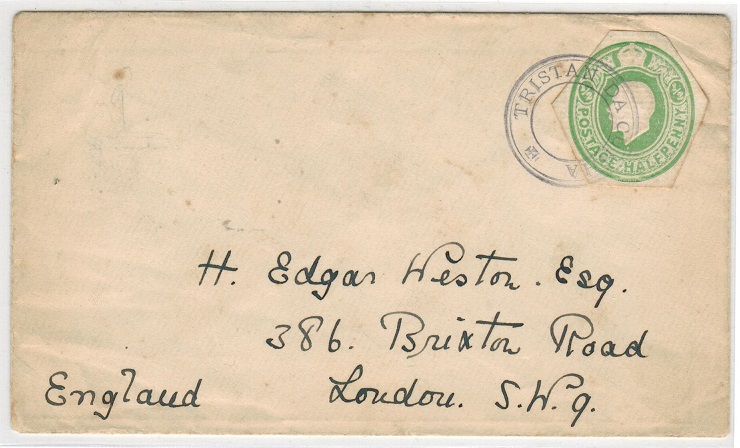 TRISTAN DA C
POSTAGE HALFPENNY
H. Edgar Weston. Esq.
386. Brixton Road
London. S.W.9.
England